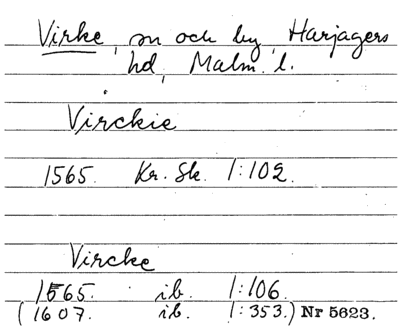 Virke, sn och by, Harjagers
hd, Malm. l.
Virckie
1565. Kr. Sk. 1:102.
Vircke
1565. ib. 1:106.
(1607. ib. 1:353.) Nr 5623.